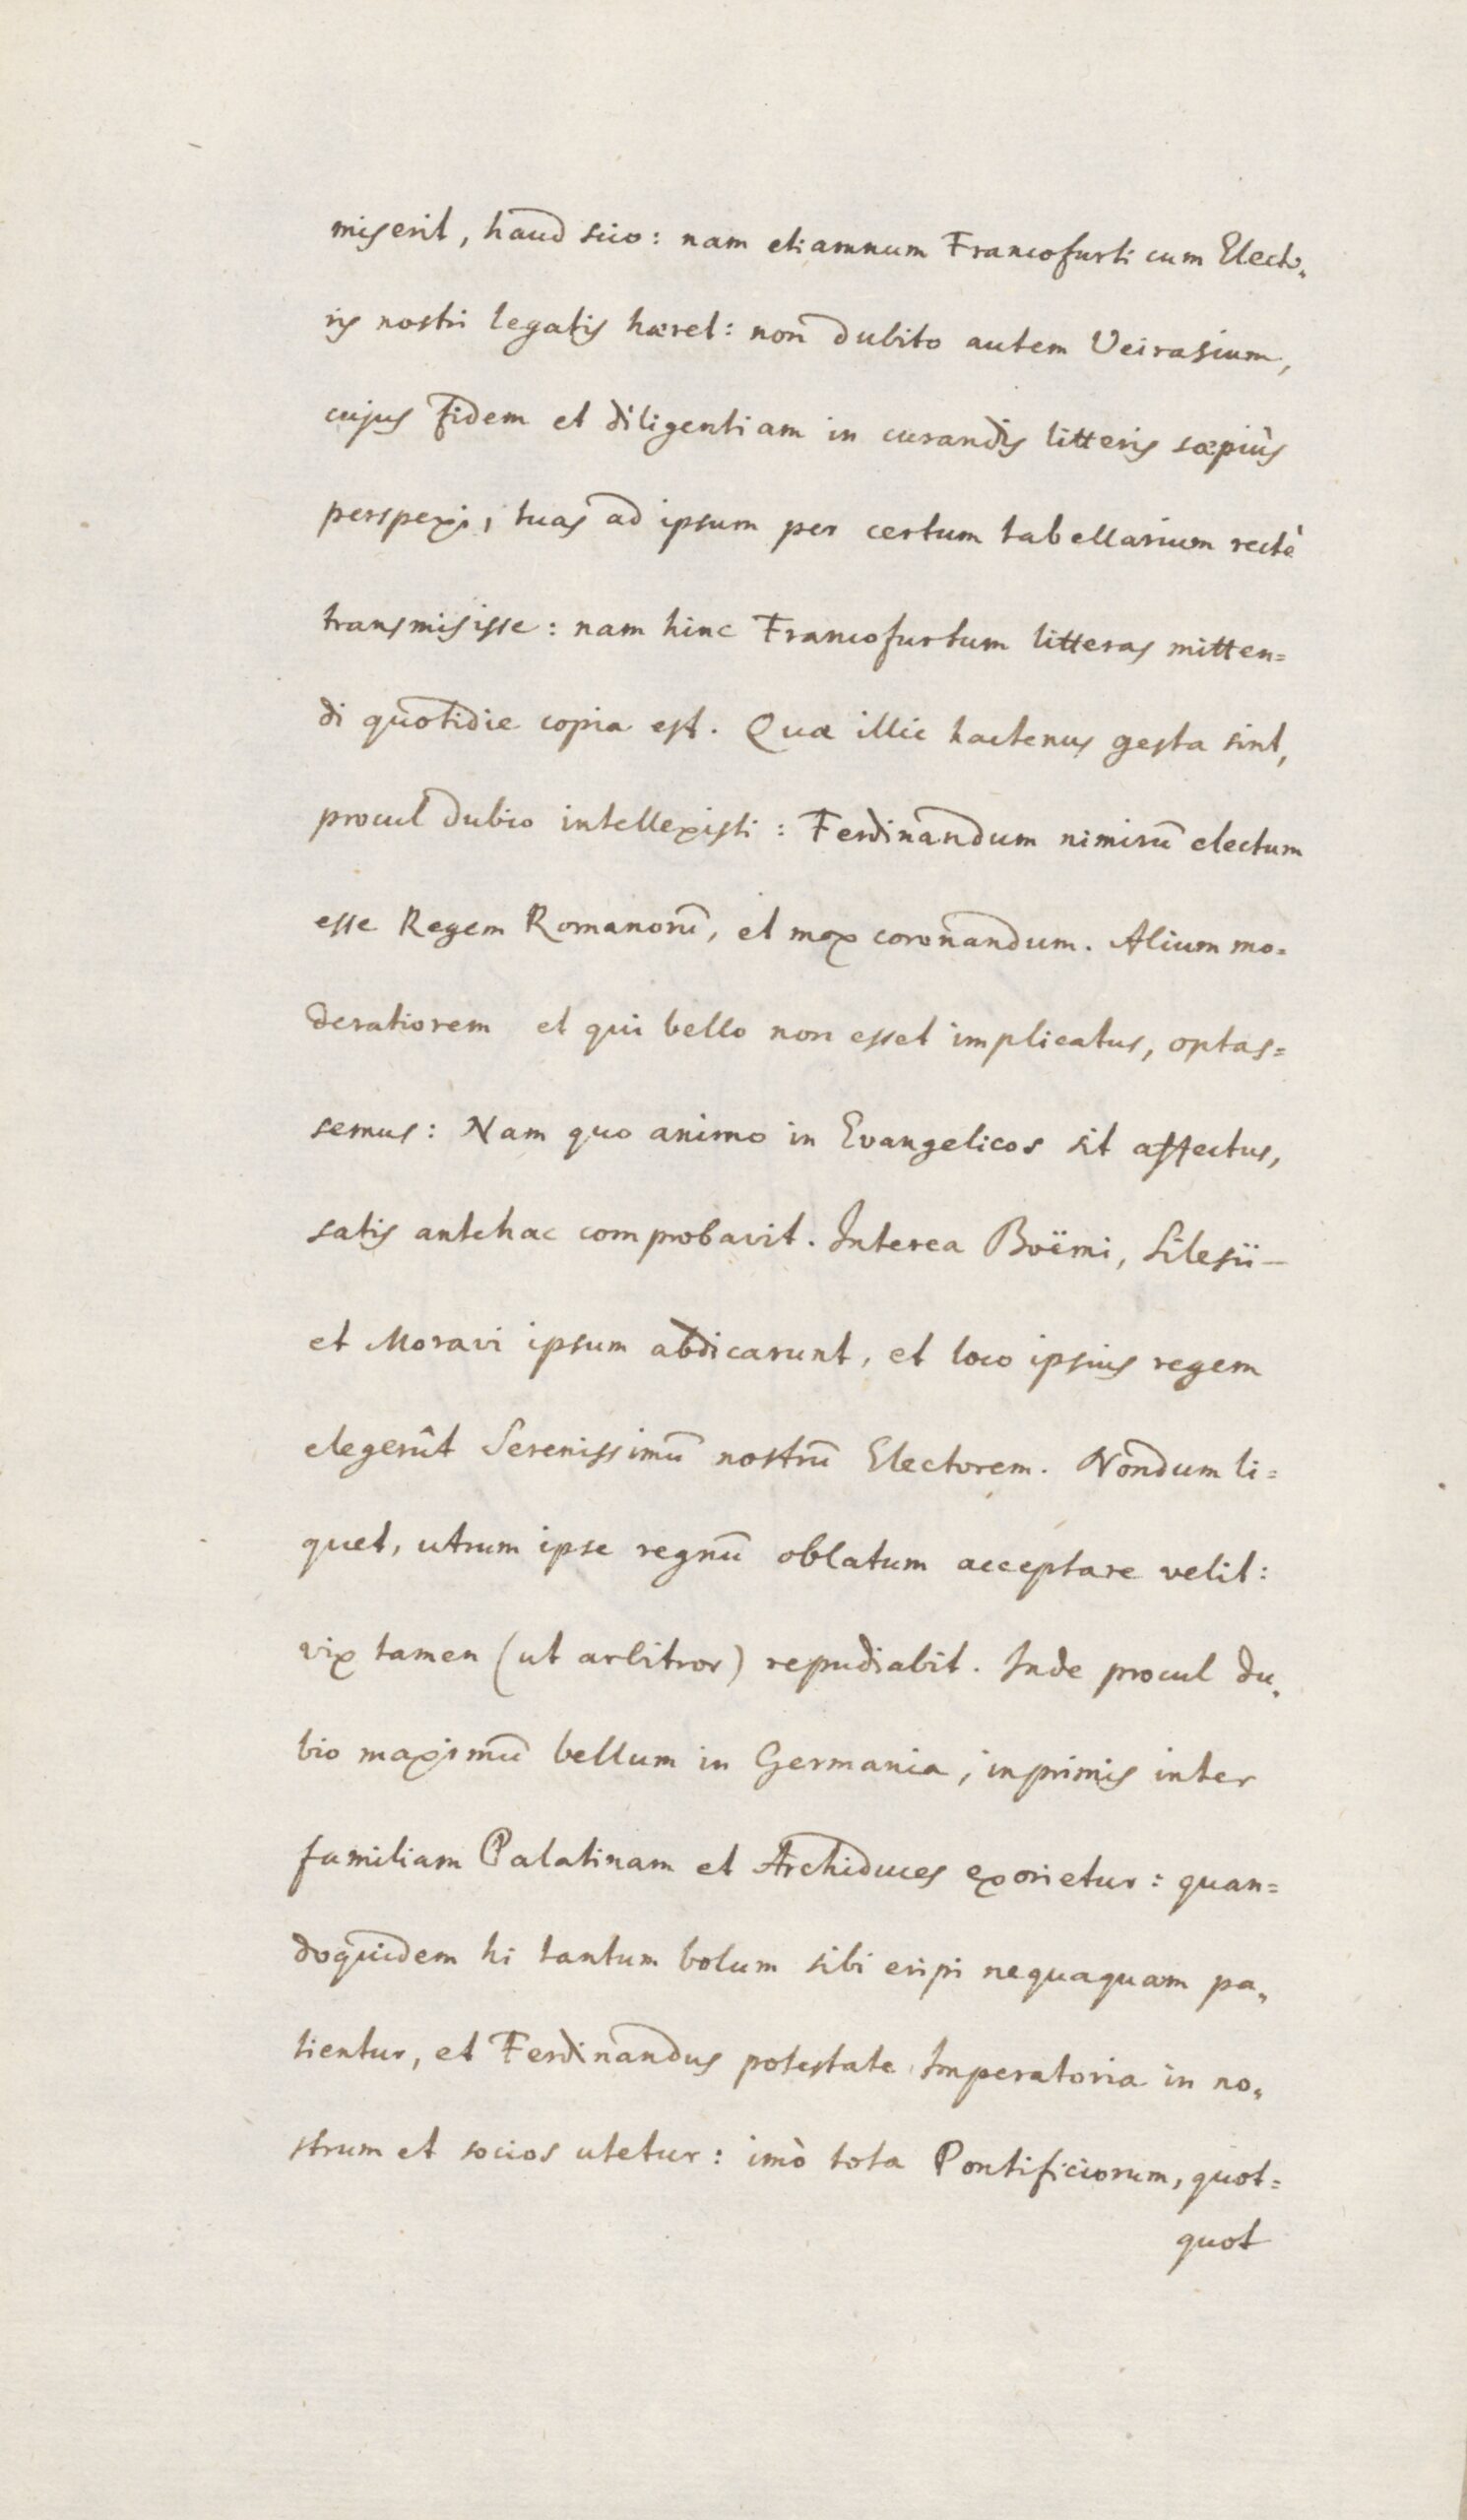 miserit, haud scio: nam etiamnum Francofurti cum Electo„
ris nostri legatis hæret: non dubito autem Veirasium,
cujus fidem et diligentiam in curandis litteris sæpiùs
perspexi, tuas ad ipsum per certum tabellarium rectè
transmisisse: nam hinc Francofurtum litteras mitten=
di quotidie copia est. Quæ illic hactenus gesta sint,
procul dubio intellexisti: Ferdinandum nimirū electum
esse Regem Romanorū, et mox coronandum. Alium mo=
deratiorem et qui bello non esset implicatus, optas=
semus: Nam quo animo in Evangelicos sit affectus,
satis antehac comprobavit. Interea Boëmi, Silesii—
et Moravi ipsum abdicarunt, et loco ipsius regem
elegerût Serenissimū nostrū Electorem. Nondum li=
quet, utrum ipse regnū oblatum acceptare velit:
vix tamen (ut arbitror) repudiabit. Inde procul du„
bio maximū bellum in Germania, inprimis inter
familiam Palatinam et Archiduces exorietur: quan=
doquidem hi tantum bolum sibi eripi nequaquam pa„
tientur, et Ferdinandus potestate Imperatoria in no„
strum et socios utetur: imò tota Pontificiorum, quot=
quot